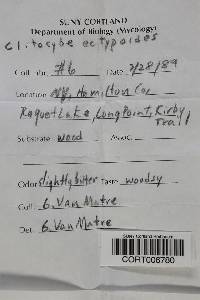 SUNY CORTLAND
Department of Biology (Mycology)
Clitocybe ectypoides
Coll. nbr. #6 Date 7/28/89
Location NY, Hamilton Co,
Raquette Lake, Long Point, Kirby
Trail
Substrate wood Assoc.
Odor slightly bitter Taste woodsy
Coll. G. Van Matre
Det. G. Van Matre
SUNY Cortland Herbarium
CORT006780